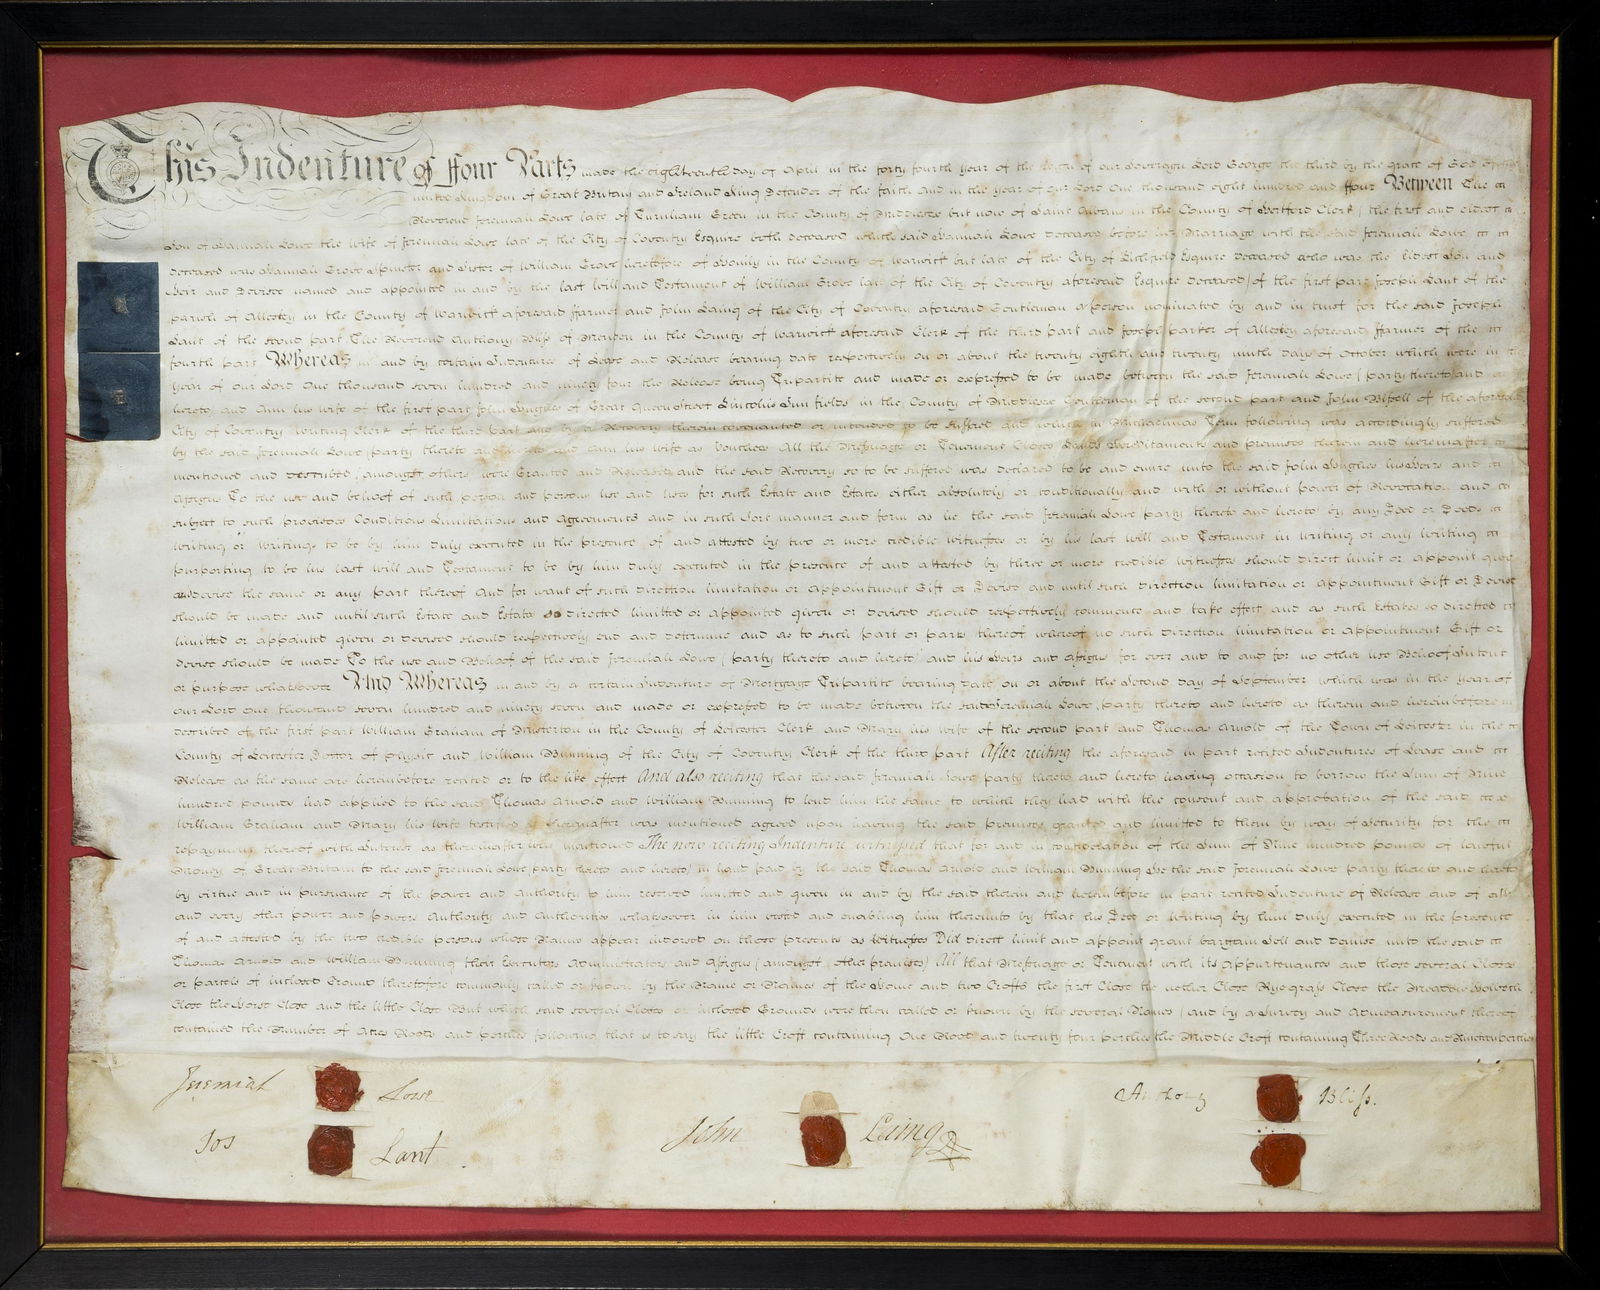 This Indenture of ffour Parts made the eighteenth day of April in the forty fourth year of the Reign of our Sovereign Lord George the third by the grace of God of the
united Kingdom of Great Britain and Ireland King Defender of the faith and in the year of our Lord One thousand eight hundred and ffour Between The
Reverend Jeremiah Lowe late of Turnham Green in the County of Middlesex but now of Saint Albans in the County of Hertford Clerk (the first and eldest
Son of Hannah Lowe the wife of Jeremiah Lowe late of the City of Coventry Esquire both deceased which said Hannah Lowe deceased before her Marriage with the said Jeremiah Lowe
deceased was Hannah Grove Spinster and Sister of William Grove heretofore of in the County of Warwick but late of the City of Lichfield Esquire deceased who was the eldest Son and
Heir and Devisee named and appointed in and by the last will and Testament of William Grove late of the City of Coventry aforesaid Esquire deceased) of the first part Joseph Lant of the
parish of Allesley in the County of Warwick aforesaid ffarmer and John Laing of the City of Coventry aforesaid Gentleman a person nominated by and in trust for the said Joseph
Lant of the second part The Reverend Anthony Bliss of in the County of Warwick aforesaid Clerk of the third part and Joseph Parker of Allesley aforesaid ffarmer of the
fourth part Whereas in and by certain Indentures of Lease and Release bearing date respectively on or about the twenty eighth and twenty ninth days of October which were in the
year of our Lord One thousand seven hundred and ninety four the Release being Tripartite and made or expressed to be made between the said Jeremiah Lowe (party thereto and
hereto) and Ann his wife of the first part John Hughes of Great Queen Street Lincolns Inn fields in the County of Middlesex Gentleman of the second part and John Bissell of the aforesaid
City of Coventry writing Clerk of the third part and by a Recovery therein covenanted or intended to be suffered and which in Michaelmas Term following was accordingly suffered
by the said Jeremiah Lowe (party thereto and hereto) and Ann his wife as Vouchees All the Messuage or Tenement Closes Lands Hereditaments and premises therein and hereinafter
mentioned and described (amongst others) were Granted and Released and the said Recovery so to be suffered was declared to be and enure unto the said John Hughes his Heirs and
Assigns To the use and behoof of such person and persons use and uses for such Estate and Estates either absolutely or conditionally and with or without power of Revocation and
subject to such provisoes Conditions Limitations and Agreements and in such sort manner and form as he the said Jeremiah Lowe party thereto and hereto by any Deed or Deeds
writing or writings to be by him duly executed in the presence of and attested by two or more credible witnesses or by his last will and Testament in writing or any writing
purporting to be his last will and Testament to be by him duly executed in the presence of and attested by three or more credible witnesses should direct limit or appoint give
or devise the same or any part thereof And for want of such direction limitation or appointment Gift or Devise and until such direction limitation or appointment Gift or Devise
should be made and until such Estate and Estates so directed limitted or appointed given or devised should respectively commence and take effect and as such Estates so directed
limitted or appointed given or devised should respectively end and determine and as to such part or parts thereof whereof no such direction limitation or appointment Gift or
Devise should be made To the use and Behoof of the said Jeremiah Lowe (party thereto and hereto) and his Heirs and Assigns for ever and to and for no other use Behoof Intent
or purpose whatsoever And Whereas in and by a certain Indenture of Mortgage Tripartite bearing date on or about the Second day of September which was in the year of
our Lord One thousand seven hundred and ninety seven and made or expressed to be made between the said Jeremiah Lowe party thereto and hereto as therein and hereinbefore
described of the first part William Graham of Misterton in the County of Leicester Clerk and Mary his wife of the second part and Thomas Arnold of the Town of Leicester in the
County of Leicester Doctor of Physic and William Bunning of the City of Coventry Clerk of the third part After reciting the aforesaid in part recited Indentures of Lease and
Release as the same are hereinbefore recited or to the like effect And also reciting that the said Jeremiah Lowe party thereto and hereto having occasion to borrow the Sum of Nine
hundred pounds had applied to the said Thomas Arnold and William Bunning to lend him the same to which they had with the consent and approbation of the said
William Graham and Mary his wife testified as thereinafter was mentioned agreed upon having the said premises granted and limitted to them by way of Security for the
repayment thereof with Interest as thereinafter was mentioned The now reciting Indenture witnessed that for and in consideration of the Sum of Nine hundred pounds of lawful
Money of Great Britain to the said Jeremiah Lowe party thereto and hereto in hand paid by the said Thomas Arnold and William Bunning He the said Jeremiah Lowe party thereto and hereto
by virtue and in pursuance of the power and authority to him reserved limitted and given in and by the said therein and hereinbefore in part recited Indenture of Release and of all
and every other power and powers Authority and Authorities whatsoever in him vested and enabling him thereunto by that his Deed or writing by him duly executed in the presence
of and attested by the two credible persons whose Names appear indorsed on those presents as Witnesses Did direct limit and appoint grant bargain Sell and demise unto the said
Thomas Arnold and William Bunning their Executors Administrators and Assigns (amongst other premises) All that Messuage or Tenement with its Appurtenances and those several Closes
or parcels of inclosed Ground theretofore commonly called or known by the Name or Names of the Home and two Crofts the first Close the nether Close Ryegrass Close the Meadow
Close the Horse Close and the little Close But which said several Closes or inclosed Grounds were then called or known by the several Names (and by a Survey and Admeasurement thereof
contained the Number of Acres Roods and perches following that is to say the little Croft containing One Rood and twenty four perches the Middle Croft containing Three Roods and Nineteen perches
Jeremiah Lowe
Anthony Bliss.
Jos Lant.
John Laing